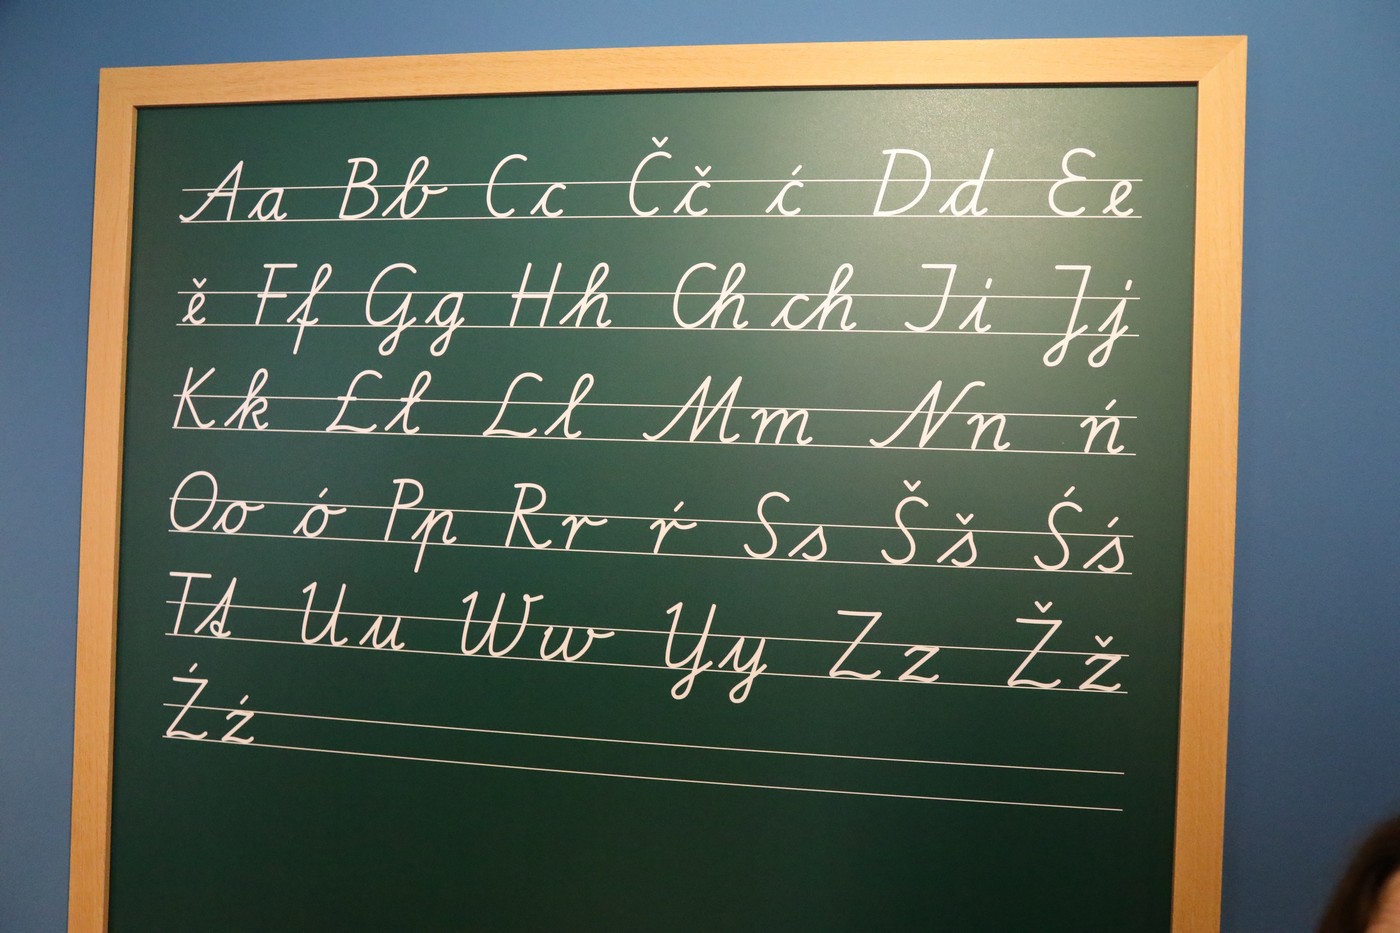 Aa Bb Cc Čč ć Dd Ee
ě Ff Gg Hh Ch ch Ii Jj
Kk Łł Ll Mm Nn ń
Oo ó Pp Rr ŕ Ss Šš Śś
Tt Uu Ww Yy Zz Žž
Źź